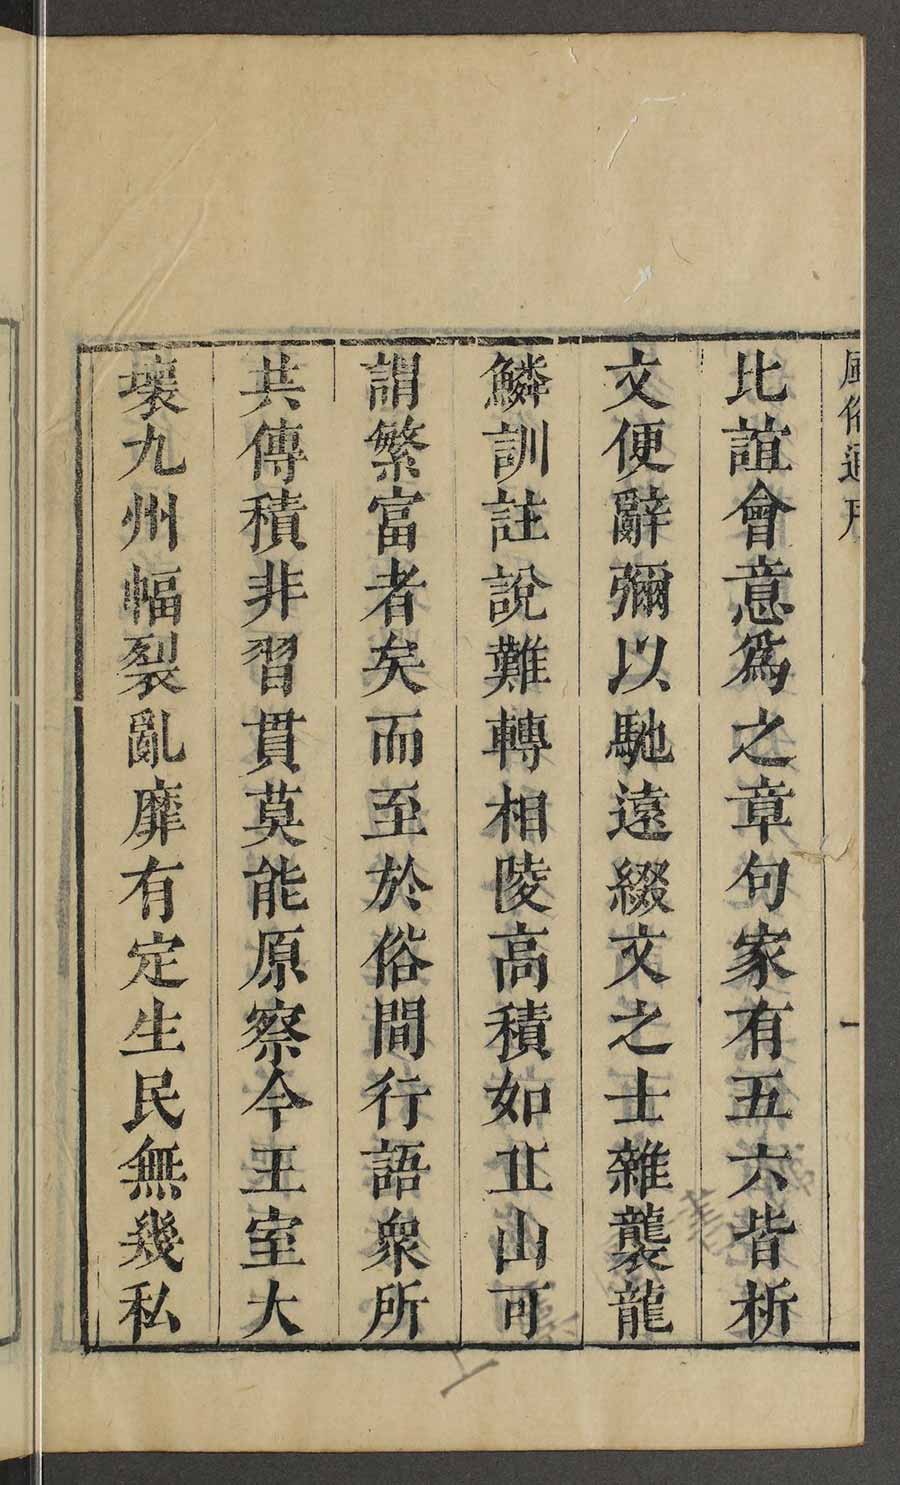 風俗通序
一
比誼會意爲之章句家有五六皆析
文便辭彌以馳遠綴文之士雜襲龍
鱗訓註說難轉相陵高積如丘山可
謂繁富者矣而至於俗間行語衆所
共傳積非習貫莫能原察今王室大
壞九州幅裂亂靡有定生民無幾私